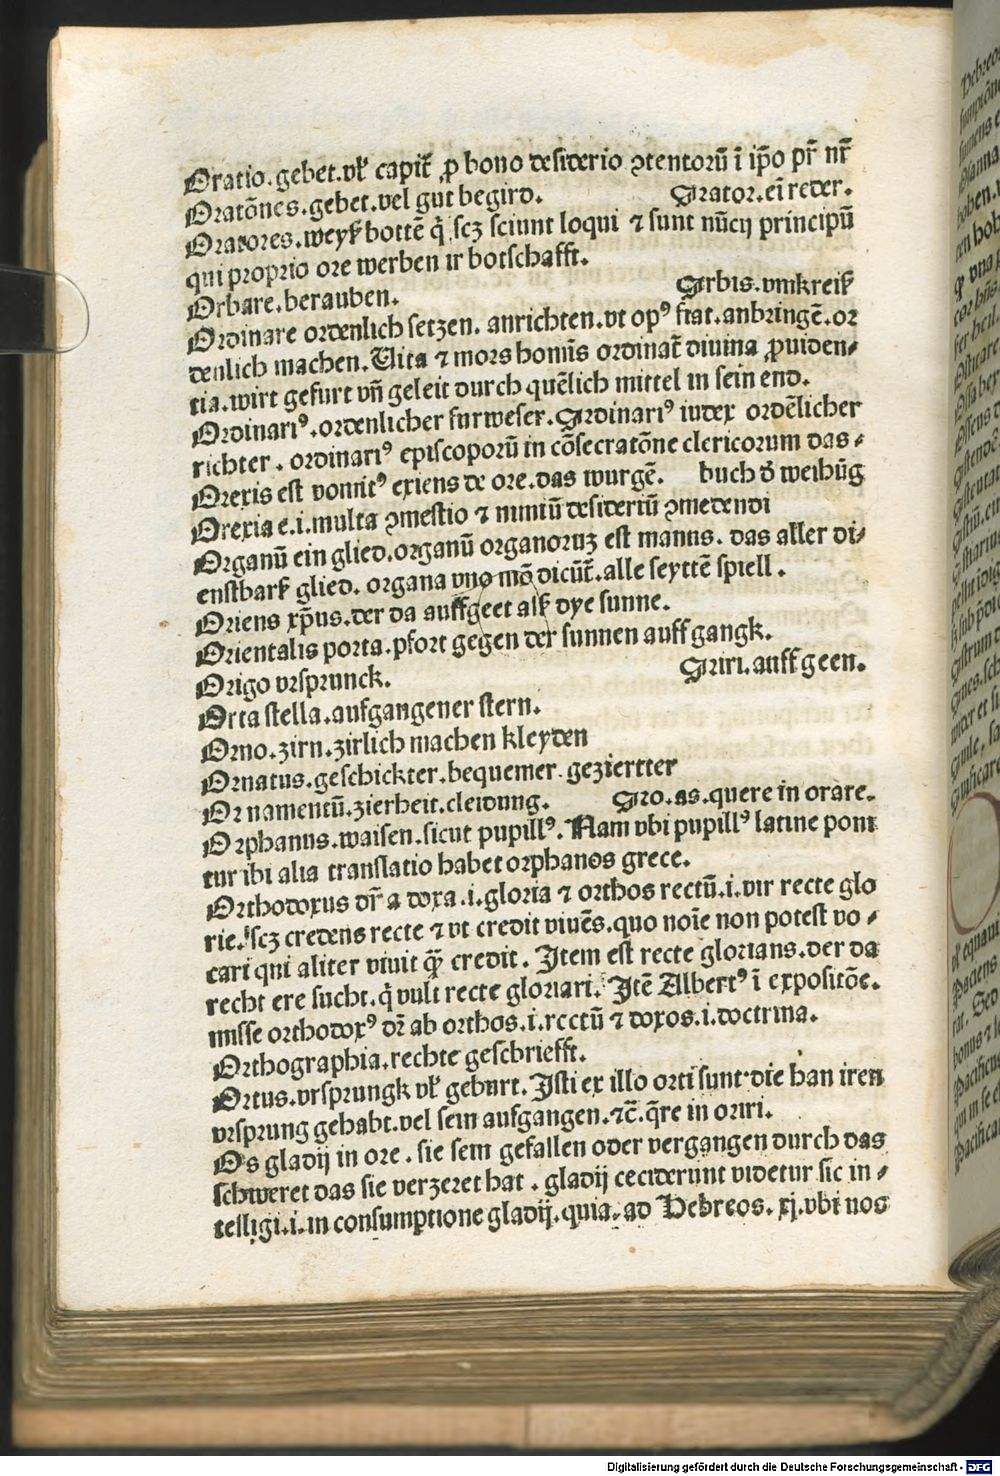 Oratio.gebet.vl' capit̃ ꝓ bono desiderio ꝯtentorũ ĩ ip̃o pr̃ nr̃
Oratõnes.gebet.vel gut begird. Orator.eĩ reder.
Oratores.weyß bottẽ q̃ scꝫ sciunt loqui ⁊ sunt nũcij principũ
qui proprio ore werben ir botschafft.
Orbare.berauben. Orbis.vmkreiß
Ordinare ordenlich setzen. anrichten.vt opꝰ ſtat.anbringẽ.or
denlich machen.Uita ⁊ mors homĩs ordinat̃ diuina ꝓuiden⸗
tia.wirt gefurt vñ geleit durch quẽlich mittel in sein end.
Ordinariꝰ.ordenlicher furweser.Ordinariꝰ iudex ordẽlicher
richter. ordinariꝰ episcoporũ in cõsecratõne clericorum das⸗
Orexis est vomitꝰ exiens de ore.das wurgẽ. buch đ weihũg
Orexia e.i.multa ꝯmestio ⁊ nimiũ desideriũ ꝯmedendi
Organũ ein glied.organũ organoruꝫ est manus. das aller di⸗
enstbarß glied. organa vno mõ dicũt̃.alle seyttẽ spiell.
Oriens xp̃us.der da auffgeet alß dye sunne.
Orientalis porta.pfort gegen der sunnen auffgangk.
Origo vrsprunck. Oriri.auffgeen.
Orta stella.aufgangener stern.
Orno.zirn.zirlich machen kleyden
Ornatus.geschickter.bequemer.geziertter
Ornamentũ.zierheit.cleidung. Oro.as.quere in orare.
Orphanus.waisen.sicut pupillꝰ.Nam vbi pupillꝰ latine poni
tur ibi alia translatio habet orphanos grece.
Orthodoxus dr̃ a doxa.i.gloria ⁊ orthos rectũ.i.vir recte glo
rie.scꝫ credens recte ⁊ vt credit viuẽs.quo noĩe non potest vo⸗
cari qui aliter viuit q̃ꝫ credit. Item est recte glorians.der da
recht ere sucht.q̃ vult recte gloriari. Itẽ Albertꝰ ĩ expositõe.
misse orthodoxꝰ dr̃ ab orthos.i.rectũ ⁊ doxos.i.doctrina.
Orthographia.rechte geschriefft.
Ortus.vrsprungk vl' geburt. Isti ex illo orti sunt.die han iren
vrsprung gehabt.vel sein aufgangen.⁊c̃.q̃re in oriri.
Os gladij in ore. sie sein gefallen oder vergangen durch das
schweret das sie verzeret hat. gladij ceciderunt videtur sic in⸗
telligi.i.in consumptione gladij.quia. ad Hebreos. xj.vbi nos
Digitalisierung gefördert durch die Deutsche Forschungsgemeinschaft - DFG